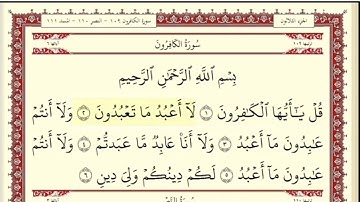 سورة الكافرون ١٠٩ - النصر ١١٠ - المسد ١١١
الجزء الثلاثون
سُورَةُ الكَافِرُونَ
بِسْمِ اللَّهِ الرَّحْمَٰنِ الرَّحِيمِ
قُلْ يَٰٓأَيُّهَا ٱلْكَٰفِرُونَ ١ لَآ أَعْبُدُ مَا تَعْبُدُونَ ٢ وَلَآ أَنتُمْ
عَٰبِدُونَ مَآ أَعْبُدُ ٣ وَلَآ أَنَا۠ عَابِدٌ مَّا عَبَدتُّمْ ٤ وَلَآ أَنتُمْ
عَٰبِدُونَ مَآ أَعْبُدُ ٥ لَكُمْ دِينُكُمْ وَلِىَ دِينِ ٦